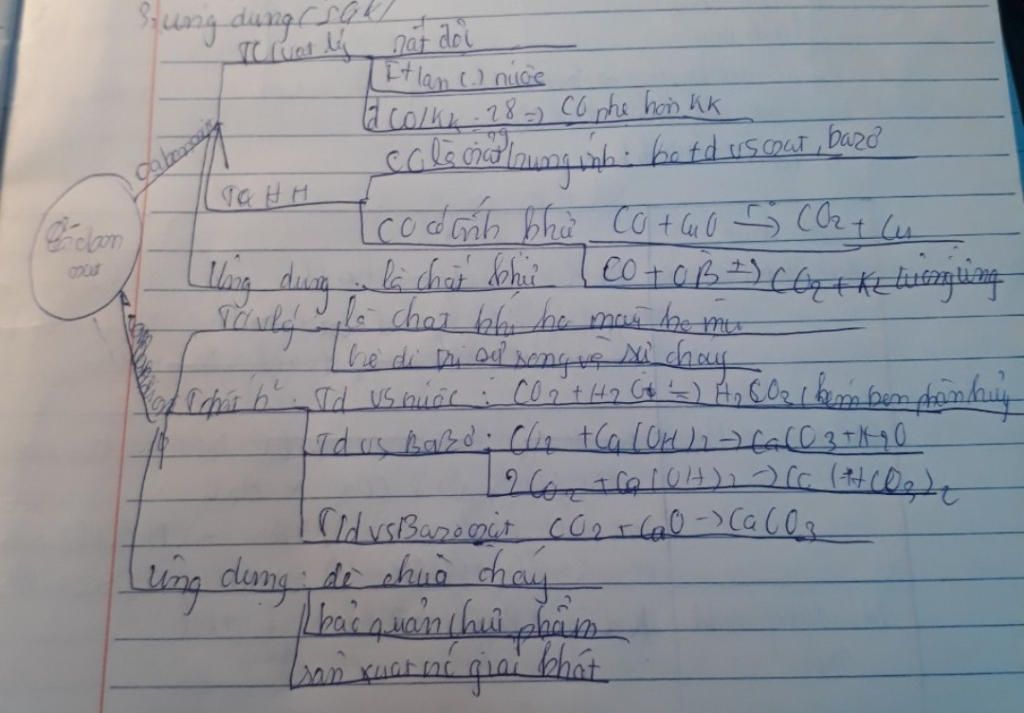 3, ứng dụng (SGK)
TC vật lý rất độc
Ít tan (.) nước
d CO/KK = 28 => CO nhẹ hơn KK
29
CO là oxit trung tính: ko td vs oxat, bazơ
TC HH
CO có tính khử CO + CuO -> CO2 + Cu
Ứng dụng : là chất khử CO + OB -> CO2 + KL tương ứng
cacbon
oxit
TC vlý là chất khí ko màu ko mùi
ko duy trì sự sống và sự cháy
T chất h² : Td vs nước : CO2 + H2O => H2CO2 (kém bền phân hủy
Td vs Bazơ : CO2 + Ca(OH)2 -> CaCO3 + H2O
2CO2 + Ca(OH)2 -> Ca(HCO3)2
Td vs Bazo oxit CO2 + CaO -> CaCO3
Ứng dụng : để chữa cháy
bảo quản thực phẩm
sản xuất nc giải khát